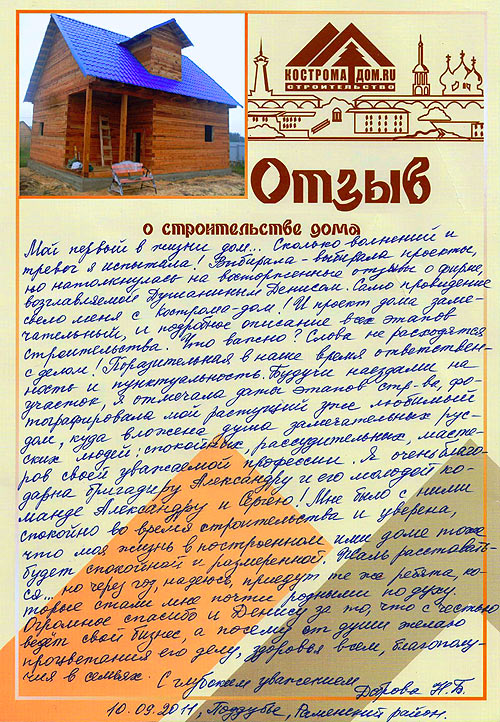 КОСТРОМА ДОМ.RU
СТРОИТЕЛЬСТВО
Отзыв
о строительстве дома
Мой первый в жизни дом... Сколько волнений и
тревог я испытала! Выбирала-выбирала проекты,
но натолкнулась на восторженные отзывы о фирме,
возглавляемой Душаниным Денисом. Само провидение
свело меня с Кострома-дом! И проект дома заме-
чательный, и подробное описание всех этапов
строительства. Что важно? Слова не расходятся
с делом! Поразительная в наше время ответствен-
ность и пунктуальность. Будучи наездами на
участок, я отмечала даты этапов стр-ва, фо-
тографировала мой растущий уже любимый
дом, куда вложена душа замечательных рус-
ских людей: спокойных, рассудительных, масте-
ров своей уважаемой профессии. Я очень благо-
дарна бригадиру Александру и его молодой ко-
манде Александру и Сергею! Мне было с ними
спокойно во время строительства и уверена,
что моя жизнь в построенном ими доме тоже
будет спокойной и размеренной. Жаль расставать-
ся... но через год, надеюсь, приедут те же ребята, ко-
торые стали мне почти родными по духу.
Огромное спасибо и Денису за то, что с честью
ведёт свой бизнес, а посему от души желаю
процветания его делу, здоровья всем, благополу-
чия в семьях. С глубоким уважением
Доброва Н.Б.
10.09.2011, Поддубье, Раменский район.